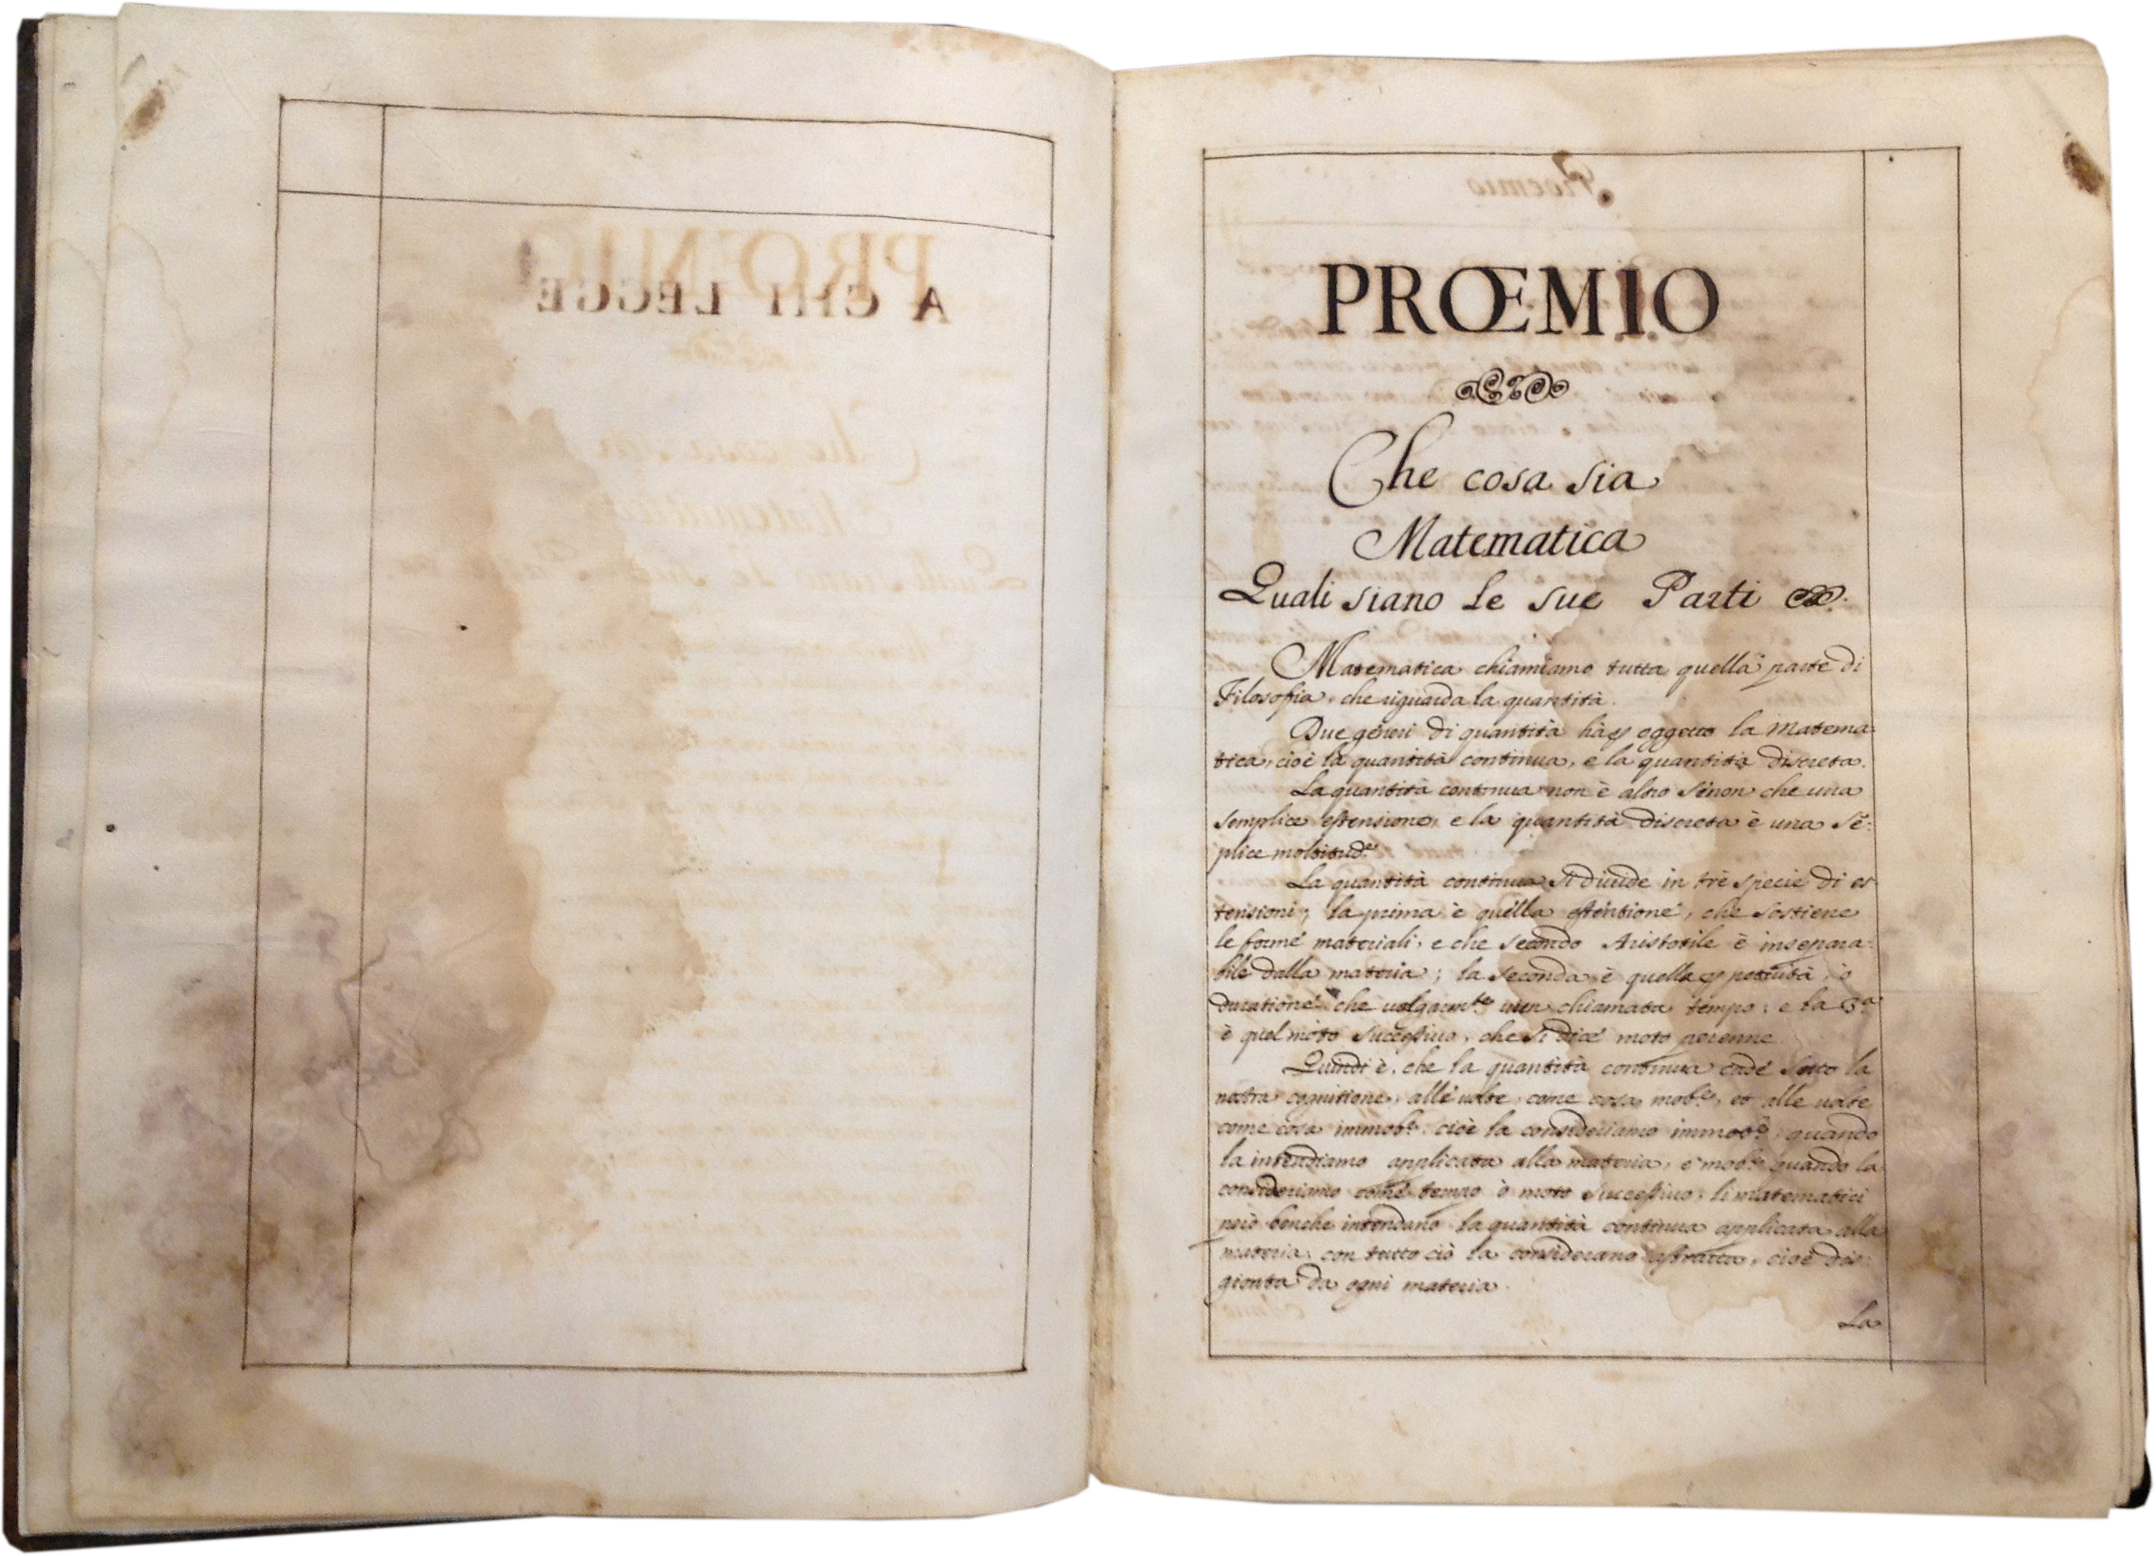 A CHI LEGGE
Proemio
PRŒMIO
Che cosa sia
Matematica
Quali siano le sue Parti
Matematica chiamiamo tutta quella parte di
Filosofia, che riguarda la quantità.
Due generi di quantità hà oggetto la Matema
tica, cioè la quantità continua, e la quantità discreta.
La quantità continua non è altro senon che una
semplice estensione, e la quantità discreta è una sē:
plice moltitud.e
La quantità continua si diuide in trè specie di es
tensioni; la prima è quella estentione, che sostiene
le forme materiali, e che secondo Aristotile è insepara:
bile dalla materia; la seconda è quella, ò
duratione che uolgarm.te uien chiamata tempo; e la 3.a
è quel moto sucessiuo, che si dice moto perenne
Quindi è, che la quantità continua cade sotto la
nostra cognitione, alle uolte, come cosa mob.e, et alle uolte
come cosa immob.e: cioè la consideriamo immob.e, quando
la intendiamo applicata alla materia, e mob.e quando la
consideriamo come tempo ò moto sucessiuo; li matematici
però benche intendano la quantità continua applicata alla
materia, con tutto ciò la considerano astratta, cioè dis:
gionta da ogni materia.
La